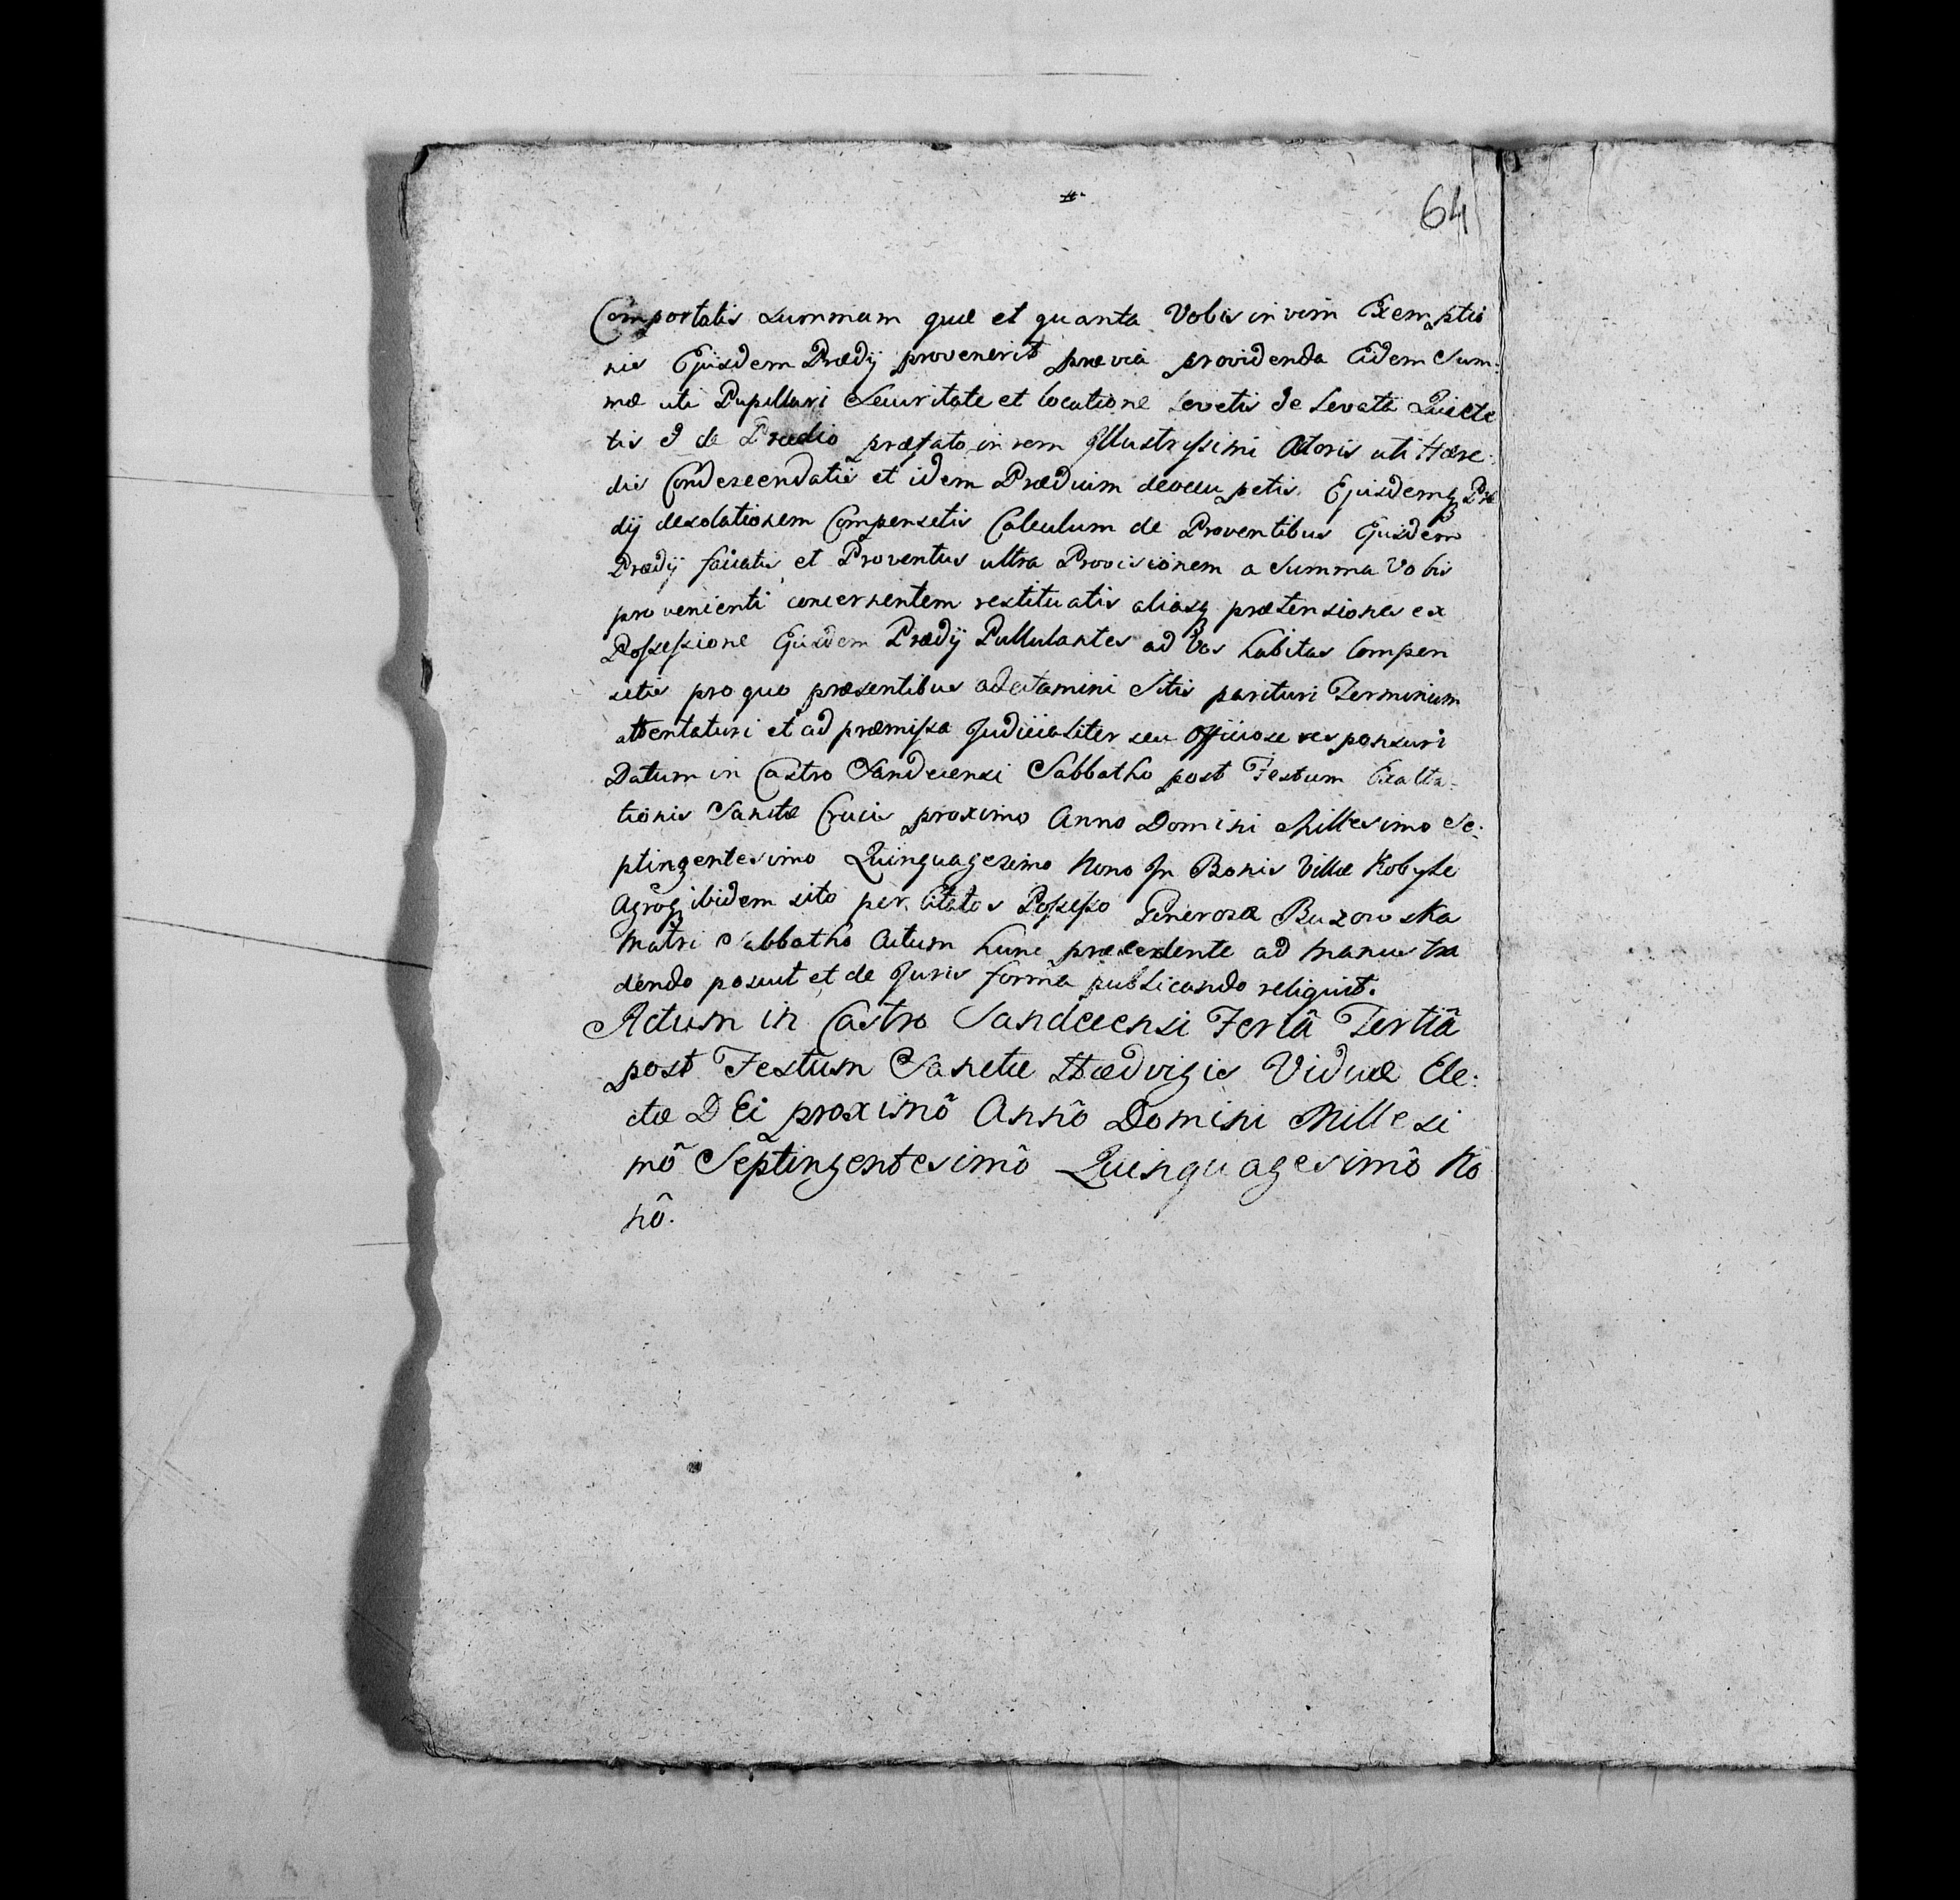 64
Comportatis summam quæ et quanta Vobis in vim Exemptio
nis Ejusdem Prædij provenerit prævia providenda Eidem Sum:
mæ uti Pupillari Securitate et locatione levetis de levata Quiete
tis de Prædio præfato in rem Jllustrissimi Actoris uti Hære:
dis Condescendatis et idem Prædium Ejusdemq Præ
dij desolationem Compensetis Calculum de Proventibus Ejusdem
Prædij faciatis et Proventus ultra Provisionem a Summa Vobis
provenienti concernentem restituatis aliasq prætensiones ex
Possessione Ejusdem Prædij Pullulantes ad Vos habitas Compen
setis pro quo præsentibus adcitamini Sitis parituri Terminum
attentaturi et ad præmissa Judicialiter seu Officiose responsuri
Datum in Castro Sandecensi Sabbatho post Festum Exalta-
tionis Sanctæ Crucis proximo Anno Domini Millesimo Se:
ptingentesimo Quinquagesimo Nono Jn Bonis Villæ Kobyle
Agroq ibidem sito per Citatos Possesso Generosæ Buzowska
Matri Sabbatho Actum hunc præcedente ad manus tra
dendo posuit et de Juris forma publicando reliquit.
Actum in Castro Sandecensi Feriâ Tertiâ
post Festum Sanctæ Hædvigis Viduæ Ele:
ctæ DEi proximô Annô Domini Millesi
mô Septingentesimô Quinquagesimô No
nô.